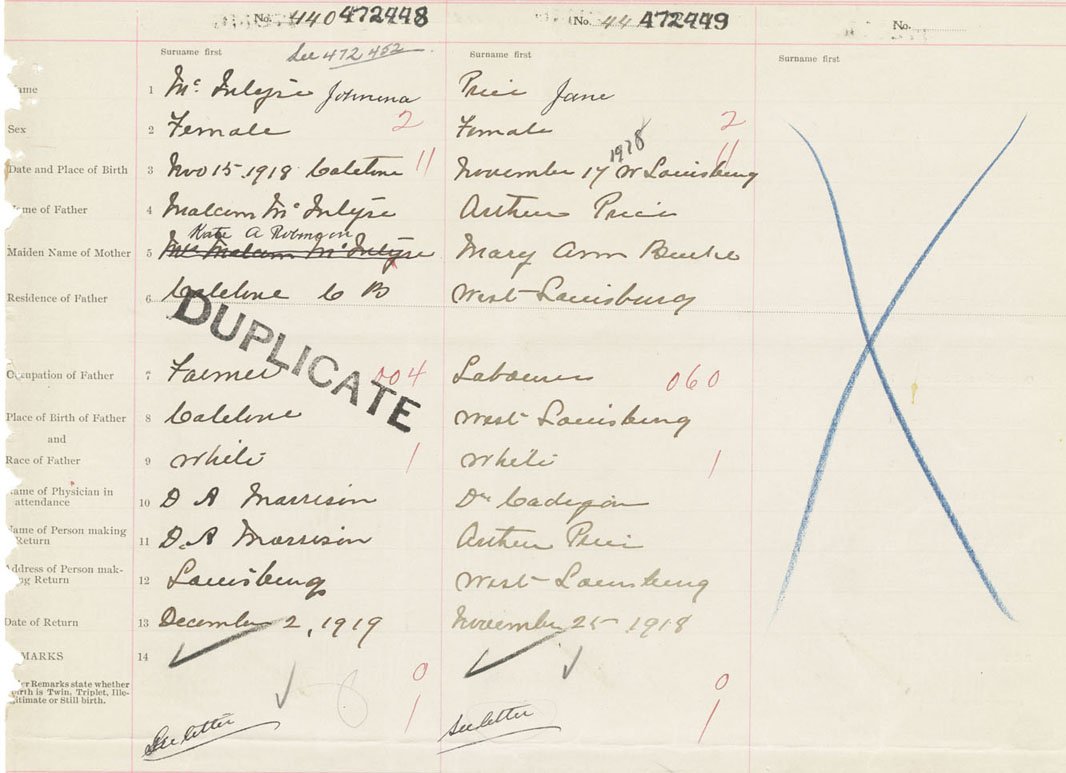 No. 440 472448
No. 44 472449
No.
See 472452
Surname first
Surname first
Surname first
ame 1 Mc Intyre Johnena Price Jane
Sex 2 Female 2 Female 2
1918
Date and Place of Birth 3 Nov 15, 1918 Catelone 11 November 17 W Louisburg 11
me of Father 4 Malcom Mc Intyre Arthur Price
Kate A Robinson
Maiden Name of Mother 5 Mrs Malcom Mc Intyre Mary Ann Burke
Residence of Father 6 Catelone C B West Louisburg
DUPLICATE
Occupation of Father 7 Farmer 004 Labourer 060
Place of Birth of Father 8 Catelone West Louisburg
and
Race of Father 9 White 1 White 1
ame of Physician in
attendance 10 D A Morrison Dr Cadegan
ame of Person making
Return 11 D. A Morrison Arthur Price
Address of Person mak-
ng Return 12 Louisburg West Louisburg
Date of Return 13 December 2, 1919 November 25 1918
MARKS 14
er Remarks state whether 0 0
irth is Twin, Triplet, Ille-
gitimate or Still birth.
1 1
See letter See letter